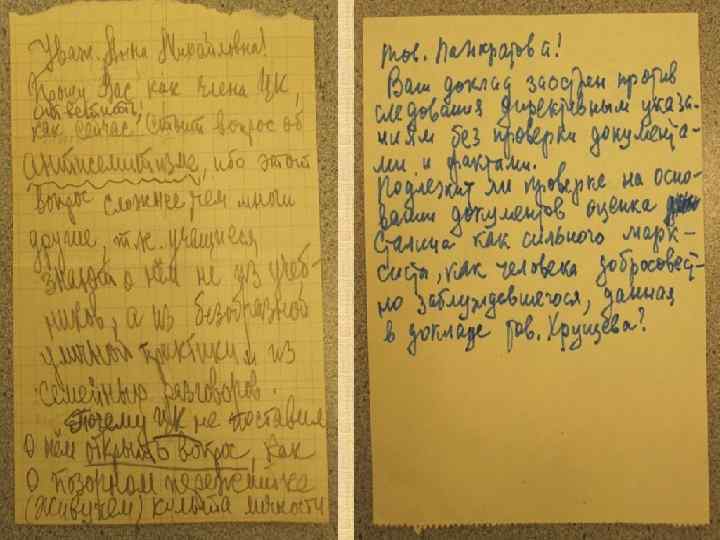 Уваж. Анна Михайловна!
Прошу Вас, как члена ЦК,
ответить!
как сейчас ставить вопрос об
антисемитизме, ибо этот
вопрос сложнее, чем многи
другие, т.к. учащиеся
знают о нём не из учеб-
ников, а из безобразной
уличной практики и из
семейных разговоров.
Почему ЦК не поставил
о нём открыто вопрос, как
о позорном пережитке
(живучем) культа личности
тов. Панкратова!
Ваш доклад заострен против
следования директивным указа-
ниям без проверки документа-
ми и фактами.
Подлежит ли проверке на осно-
вании документов оценка
Сталина как сильного марк-
систа, как человека добросовест-
но заблуждевшегося, данная
в докладе тов. Хрущева?